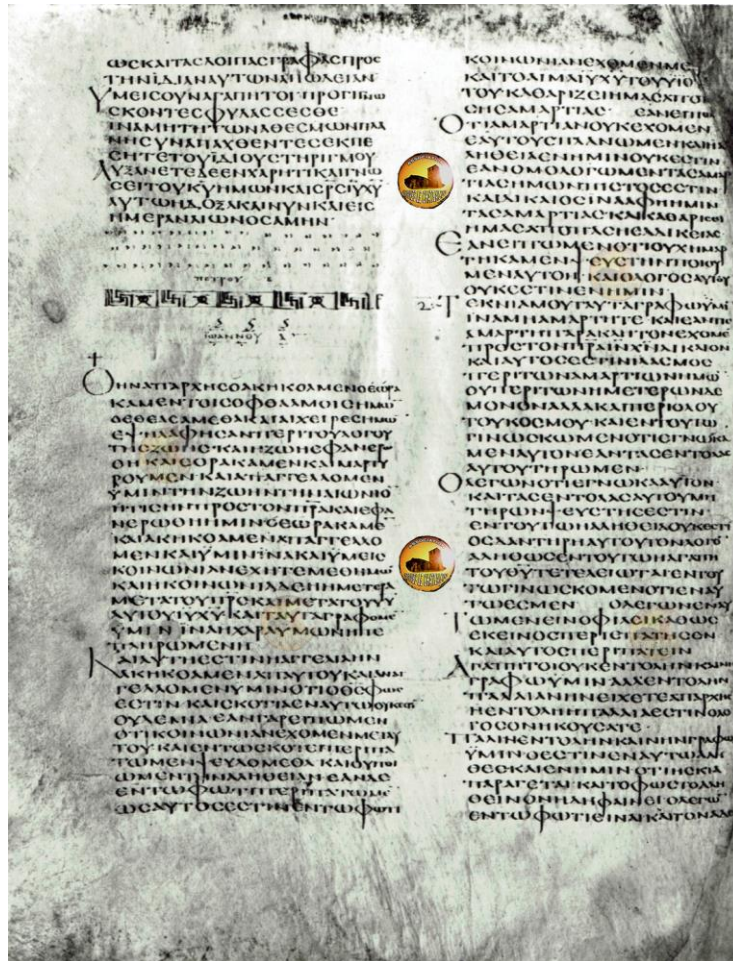 ωϲκαιταϲλοιπαϲγραφαϲπροϲ
τηνϊδιαναυτωναπωλειαν
Υμειϲουναγαπητοιπρογινω
ϲκοντεϲφυλαϲϲεϲθε
ιναμητητωναθεϲμωνπλα
νηϲυναπαχθεντεϲεκπε
ϲητετουϊδιουϲτηριγμου
Αυξανετεδεενχαριτικαιγνω
ϲειτουκυημωνκαιϲρϲιυχυ
αυτωηδοξακαινυνκαιειϲ
ημεραναιωνοϲαμην
πετρου β
ιωαννου α
Οηναπαρχηϲοακηκοαμενοεωρα
καμεντοιϲοφθαλμοιϲημω
οεθεαϲαμεθακαιαιχειρεϲημω
εψηλαφηϲανπεριτουλογου
τηϲζωηϲκαιηζωηεφανερ
θηκαιεορακαμενκαιμαρτυ
ρουμενκαιαπαγγελλομεν
ϋμιντηνζωηντηναιωνιο
ητιϲηνπροϲτονπρακαιεφα
νερωθηημινοεωρακαμε
καιακηκοαμεναπαγγελλο
μενκαιϋμινινακαιϋμειϲ
κοινωνιανεχητεμεθημω
καιηκοινωνιαδεηημετερα
μετατουπρϲκαιμετατουυυ
αυτουιυχυκαιταυταγραφομε
ϋμινιναηχαραυμωνηπε
πληρωμενη
Καιαυτηεϲτινηαγγελιαην
ακηκοαμεναπαυτουκαιαναγ
γελλομενυμινοτιοθϲφωϲ
εϲτινκαιϲκοτιαεναυτωουκεϲτι
ουδεμιαεανγαρειπωμεν
οτικοινωνιανεχομενμεταυ
τουκαιεντωϲκοτειπεριπα
τωμενψευδομεθακαιουποι
ουμεντηναληθειανεανδε
εντωφωτιπεριπατωμε
ωϲαυτοϲεϲτινεντωφωτι
κοινωνιανεχομενμε
καιτοαιμαιυχυτουυϊο
τουκαθαριζειημαϲαποπ
ϲηϲαμαρτιαϲ εανειπω
Οτιαμαρτιανουκεχομεν
εαυτουϲπλανωμενκαιηα
ληθειαενημινουκεϲτιν
εανομολογωμενταϲαμαρ
τιαϲημωνπιϲτοϲεϲτιν
καιδικαιοϲιννααφηημιν
ταϲαμαρτιαϲκαικαθαριϲει
ημαϲαποπαϲηϲαδικειαϲ
Εανειπωμενοτιουχημαρ
τηκαμενψευϲτηνποιου
μεναυτονκαιολογοϲαυτου
ουκεϲτινενημιν
Τεκνιαμουταυταγραφωυμι
ιναμηαμαρτητεκαιεαντιϲ
αμαρτηπαρακλητονεχομε
προϲτονπραινχνδικαιον
καιαυτοϲεϲτινιλαϲμοϲ
περιτωναμαρτιωνημω
ουπεριτωνημετερωνδε
μονοναλλακαιπεριολου
τουκοϲμουκαιεντουτω
γινωϲκωμενοτιεγνωκα
μεναυτονεανταϲεντολαϲ
αυτουτηρωμεν
Ολεγωνοτιεγνωκααυτον
καιταϲεντολαϲαυτουμη
τηρωνψευϲτηϲεϲτιν
εντουτωηαληθειαουκεϲτι
οϲδαντηρηαυτουτονλογο
αληθωϲεντουτωηαγαπη
τουθυτετελειωταιεντου
τωγινωϲκομενοτιεναυ
τωεϲμεν ολεγωνεναυ
τωμενεινοφιλεικαθωϲ
εκεινοϲπεριεπατηϲεν
καιαυτοϲπεριπατειν
Αγαπητοιουκεντοληνκαινη
γραφωϋμιναλλεντολην
παλαιανηνειχετεαπαρχηϲ
ηεντοληηπαλαιαεϲτινολο
γοϲονηκουϲατε
Παλινεντοληνκαινηνγραφω
ϋμινοεϲτινεναυτωαλη
θεϲκαιενημινοτιηϲκια
παραγεταικαιτοφωϲτοαλη
θεινονηδηφαινειολεγω
εντωφωτιειναικαιτοναδε